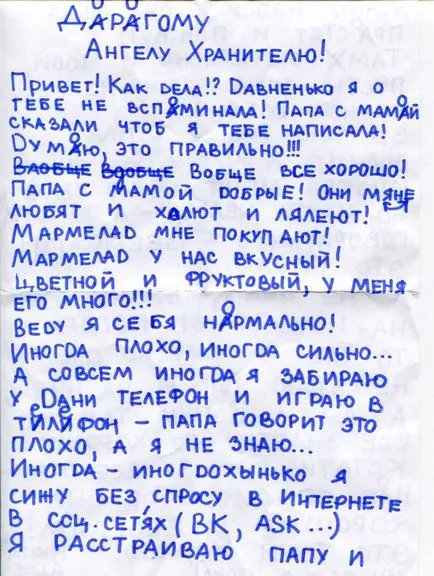 ДАРАГОМУ
АНГЕЛУ ХРАНИТЕЛЮ!
ПРИВЕТ! КАК ДЕЛА!? ДАВНЕНЬКО Я О
ТЕБЕ НЕ ВСПАМИНАЛА! ПАПА С МАМАЙ
СКАЗАЛИ ЧТОБ Я ТЕБЕ НАПИСАЛА!
ДУМАЮ, ЭТО ПРАВИЛЬНО!!!
ВАОБЩЕ ВООБЩЕ ВОБЩЕ ВСЕ ХОРОШО!
ПАПА С МАМОЙ ДОБРЫЕ! ОНИ МЯНЕ
ЛЮБЯТ И ХОЛЮТ И ЛЯЛЕЮТ!
МАРМЕЛАД МНЕ ПОКУПАЮТ!
МАРМЕЛАД У НАС ВКУСНЫЙ!
ЦВЕТНОЙ И ФРУКТОВЫЙ, У МЕНЯ
ЕГО МНОГО!!!
ВЕДУ Я СЕБЯ НАРМАЛЬНО!
ИНОГДА ПЛОХО, ИНОГДА СИЛЬНО...
А СОВСЕМ ИНОГДА Я ЗАБИРАЮ
У ДАНИ ТЕЛЕФОН И ИГРАЮ В
ТИЛИФОН - ПАПА ГОВОРИТ ЭТО
ПЛОХО, А Я НЕ ЗНАЮ...
ИНОГДА - ИНОГДОХЫНЬКО Я
СИЖУ БЕЗ СПРОСУ В ИНТЕРНЕТЕ
В СОЦ. СЕТЯХ (ВК, ASK...)
Я РАССТРАИВАЮ ПАПУ И